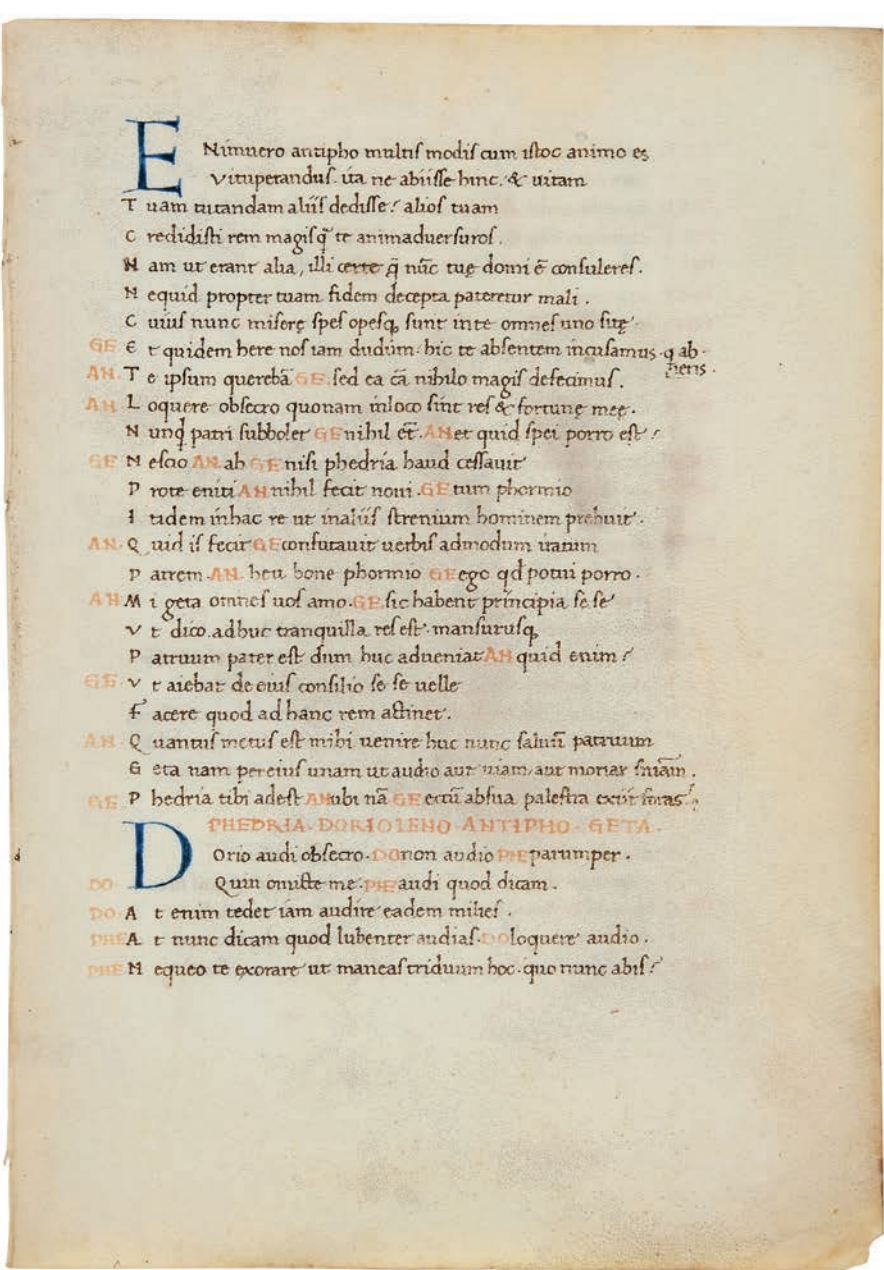 ENimuero antipho multis modis cum istoc animo es
Vituperandus. ita ne abiisse hinc. & uitam
Tuam tutandam aliis dedisse? alios tuam
Credidisti rem magis q̄ te animaduersuros.
Nam ut erant alia, illi certe q̄ nūc tuę domi ē consuleres.
Nequid propter tuam fidem decepta pateretur mali.
Cuius nunc miserę spes opesq; sunt inte omnes uno sitę.
GE Et quidem here nos iam dudum hic te absentem incusamus. q ab
ieris.
AN. Te ipsum querebā GE. sed ea cā nihilo magis defecimus.
AN Loquere obsecro quonam inloco sint res & fortunę meę.
Nunq̄d patri subbolet GE nihil ēt. AN et quid spei porro est?
GE Nescio AN ab GE nisi phedria haud cessauit
Prote eniti AN nihil fecit noui. GE tum phormio
Itidem inhac re ut inaliis strenium hominem prebuit.
AN. Quid is fecit GE confutauit uerbis admodum iratum
Patrem. AN. heu bone phormio GE ego qd potui porro.
AN Mi geta omnes uos amo. GE. sic habent principia se se
Vt dico. adhuc tranquilla res est. mansurusq;
Patruum pater est dum huc adueniat AN quid enim?
GE. Vt aiebat de eius consilio se se uelle
Facere quod ad hanc rem attinet.
AN. Quantus metus est mihi uenire huc nunc saluū patruum
Geta nam per eius unam ut audio aut uiam, aut moriar sn̄iam.
GE Phedria tibi adest AN ubi nā GE eccū absua palestra exiit foras.
PHEDRIA. DORIO LENO. ANTIPHO. GETA.
Dorio audi obsecro. DO non audio PHE parumper.
DO Quin omitte me. PHE audi quod dicam.
DO. At enim tedet iam audire eadem milies.
PHE At nunc dicam quod lubenter audias. DO loquere audio.
PHE Nequeo te exorare ut maneas triduum hoc. quo nunc abis?